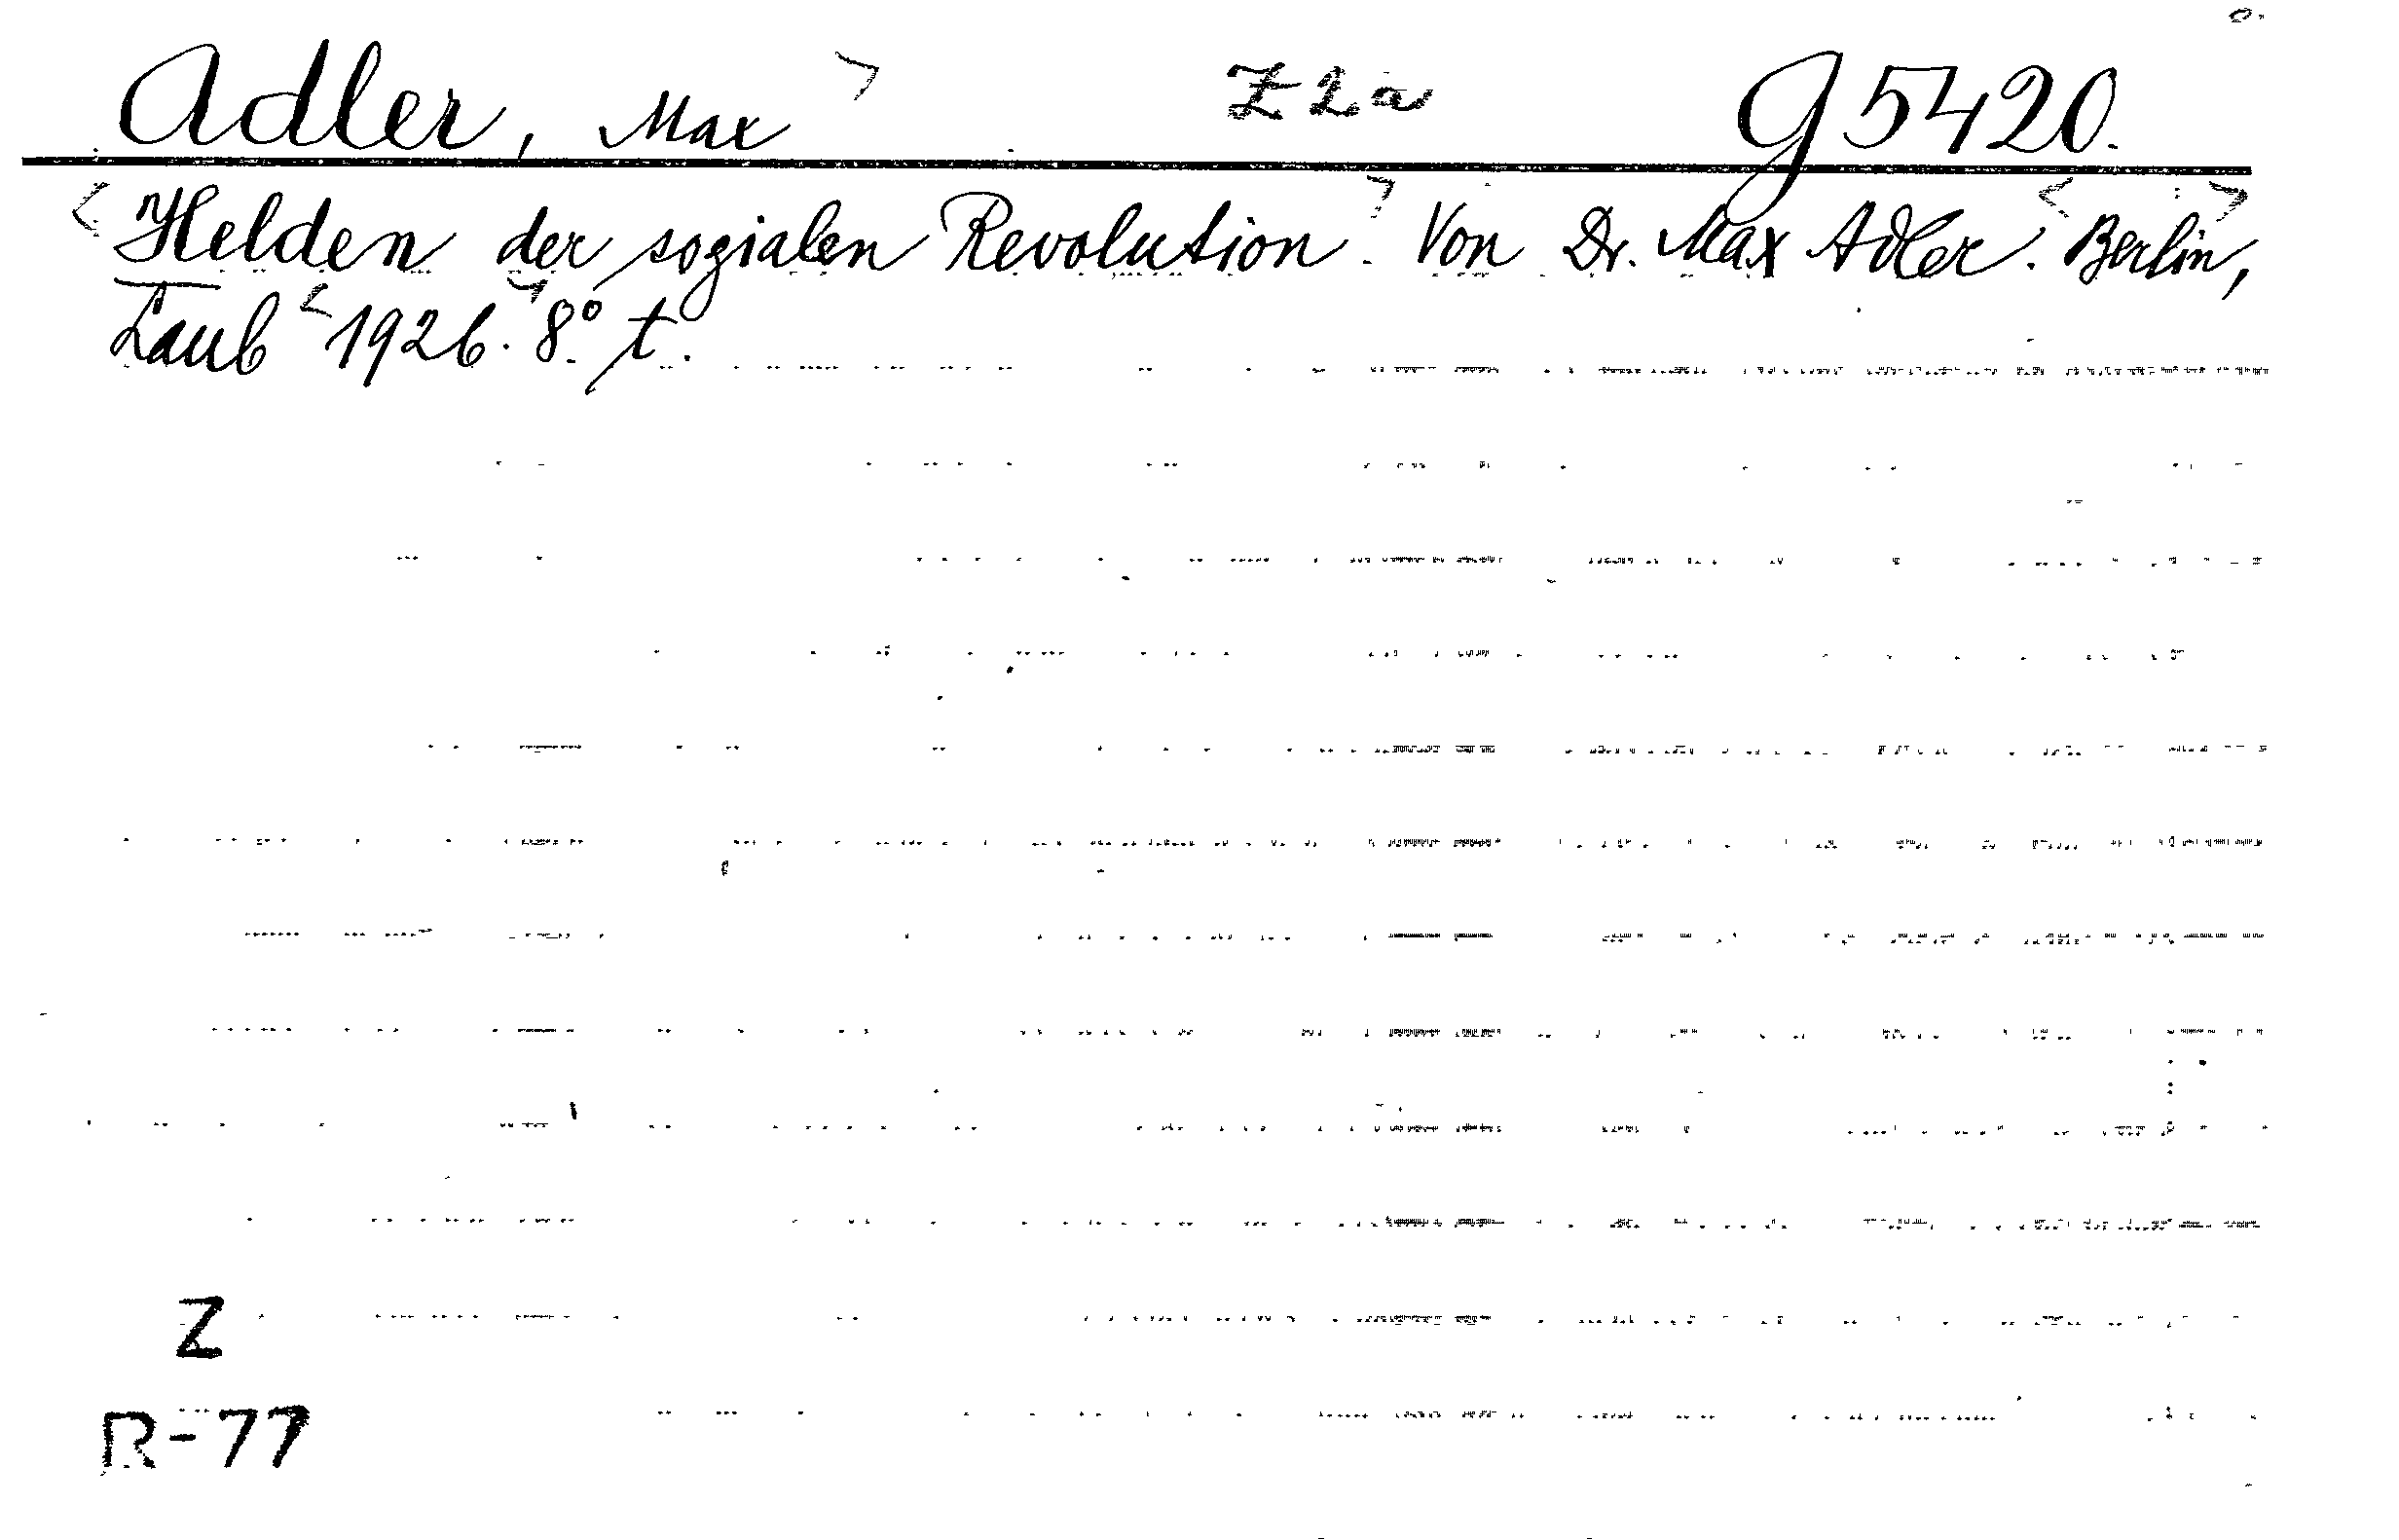 Adler, Max> Z2a G5420.
<Helden der sozialen Revolution.> Von Dr. Max Adler. <Berlin,>
Laub <1926.> 8°. t.
Z
R-77